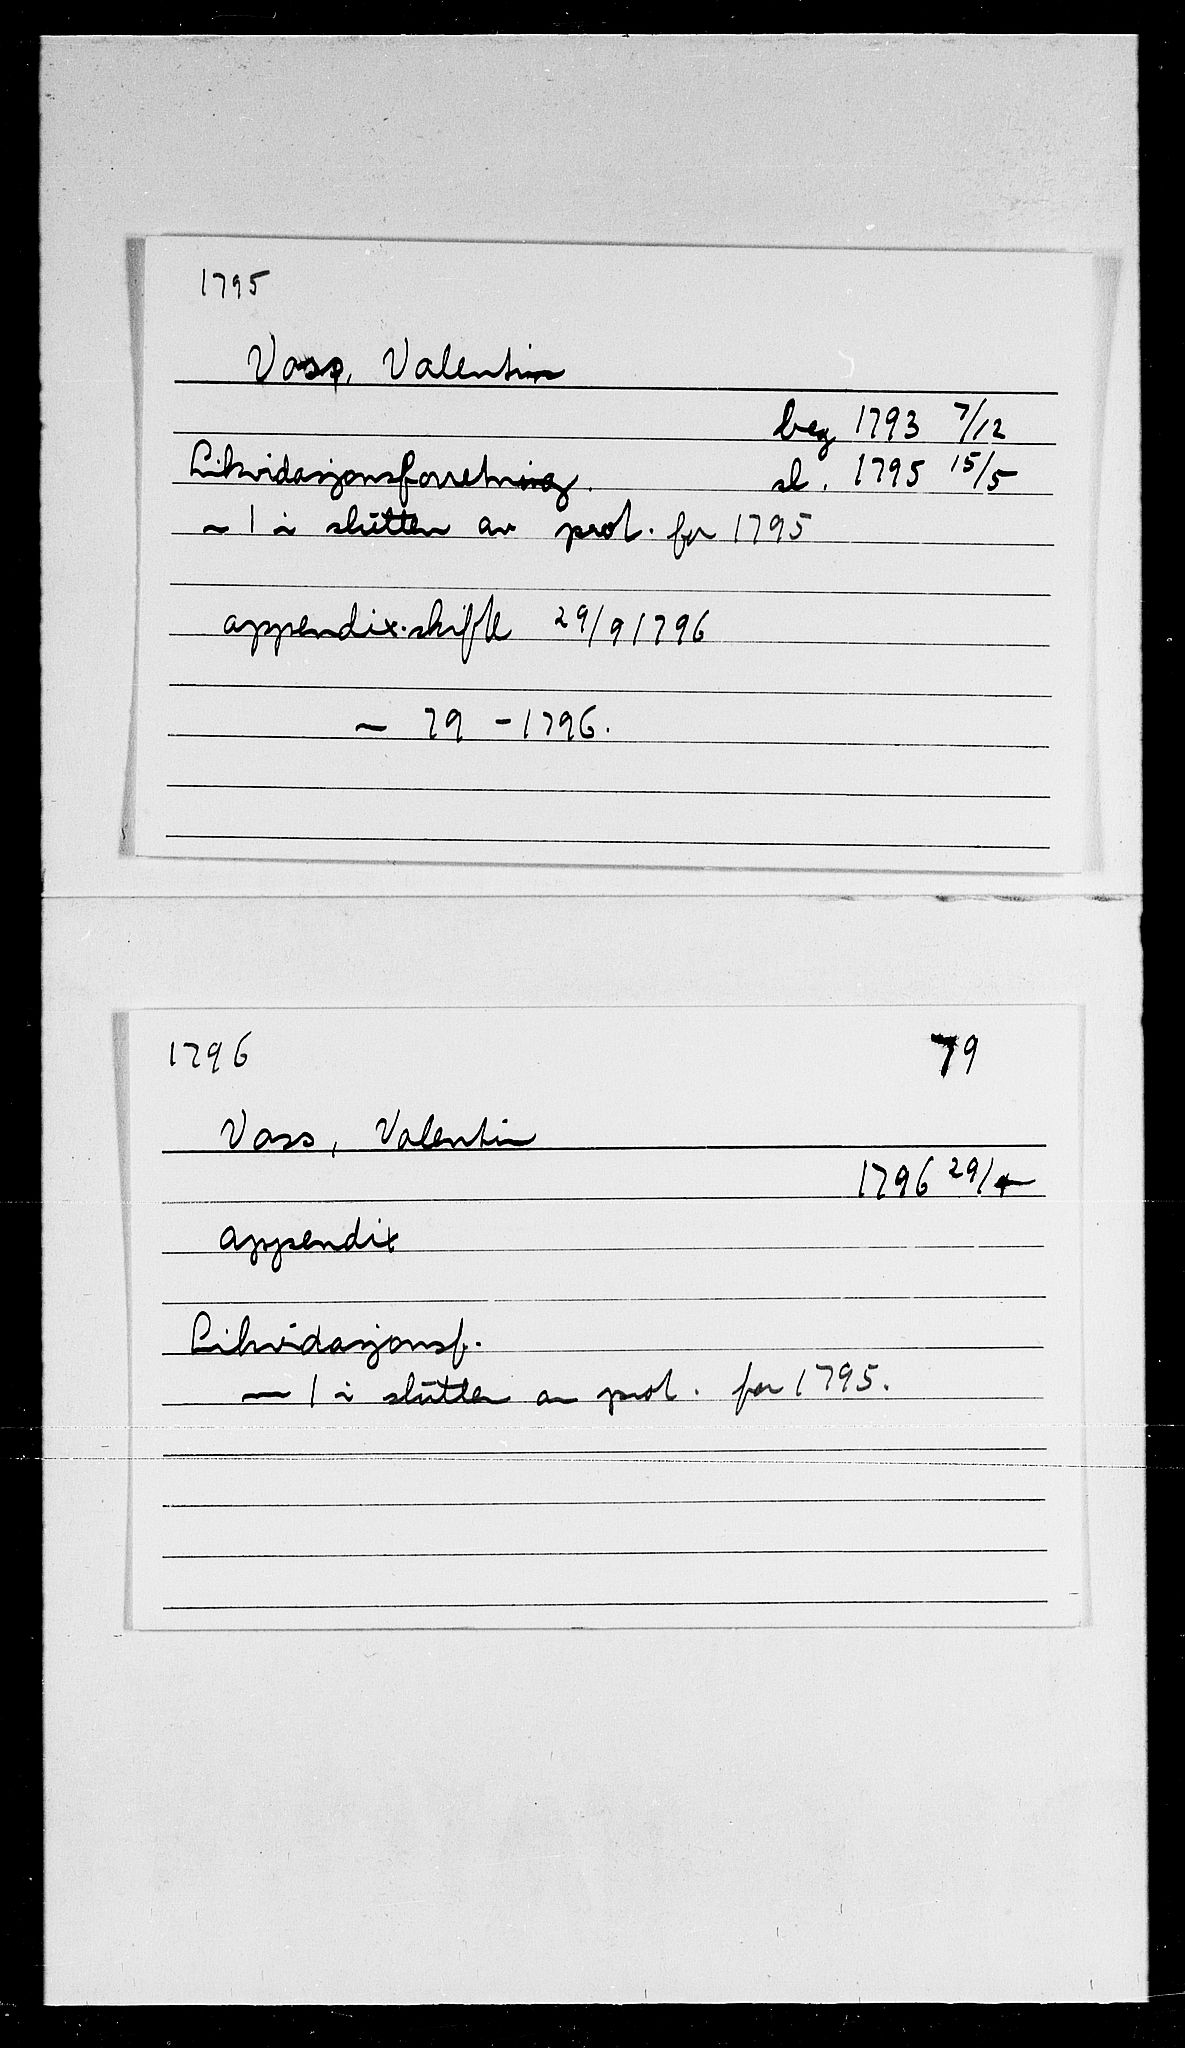 1795
Vass, Valentin
beg 1793 7/12
Likvidasjonsforretning. sl. 1795 15/5
~ 1 i slutten av prot. for 1795
appendix-skifte 29/9 1796
~ 79 - 1796.
1796 79
Vass, Valentin
1796 29/4
appendix
Likvidasjonsf.
~ 1 i slutten av prot. for 1795.